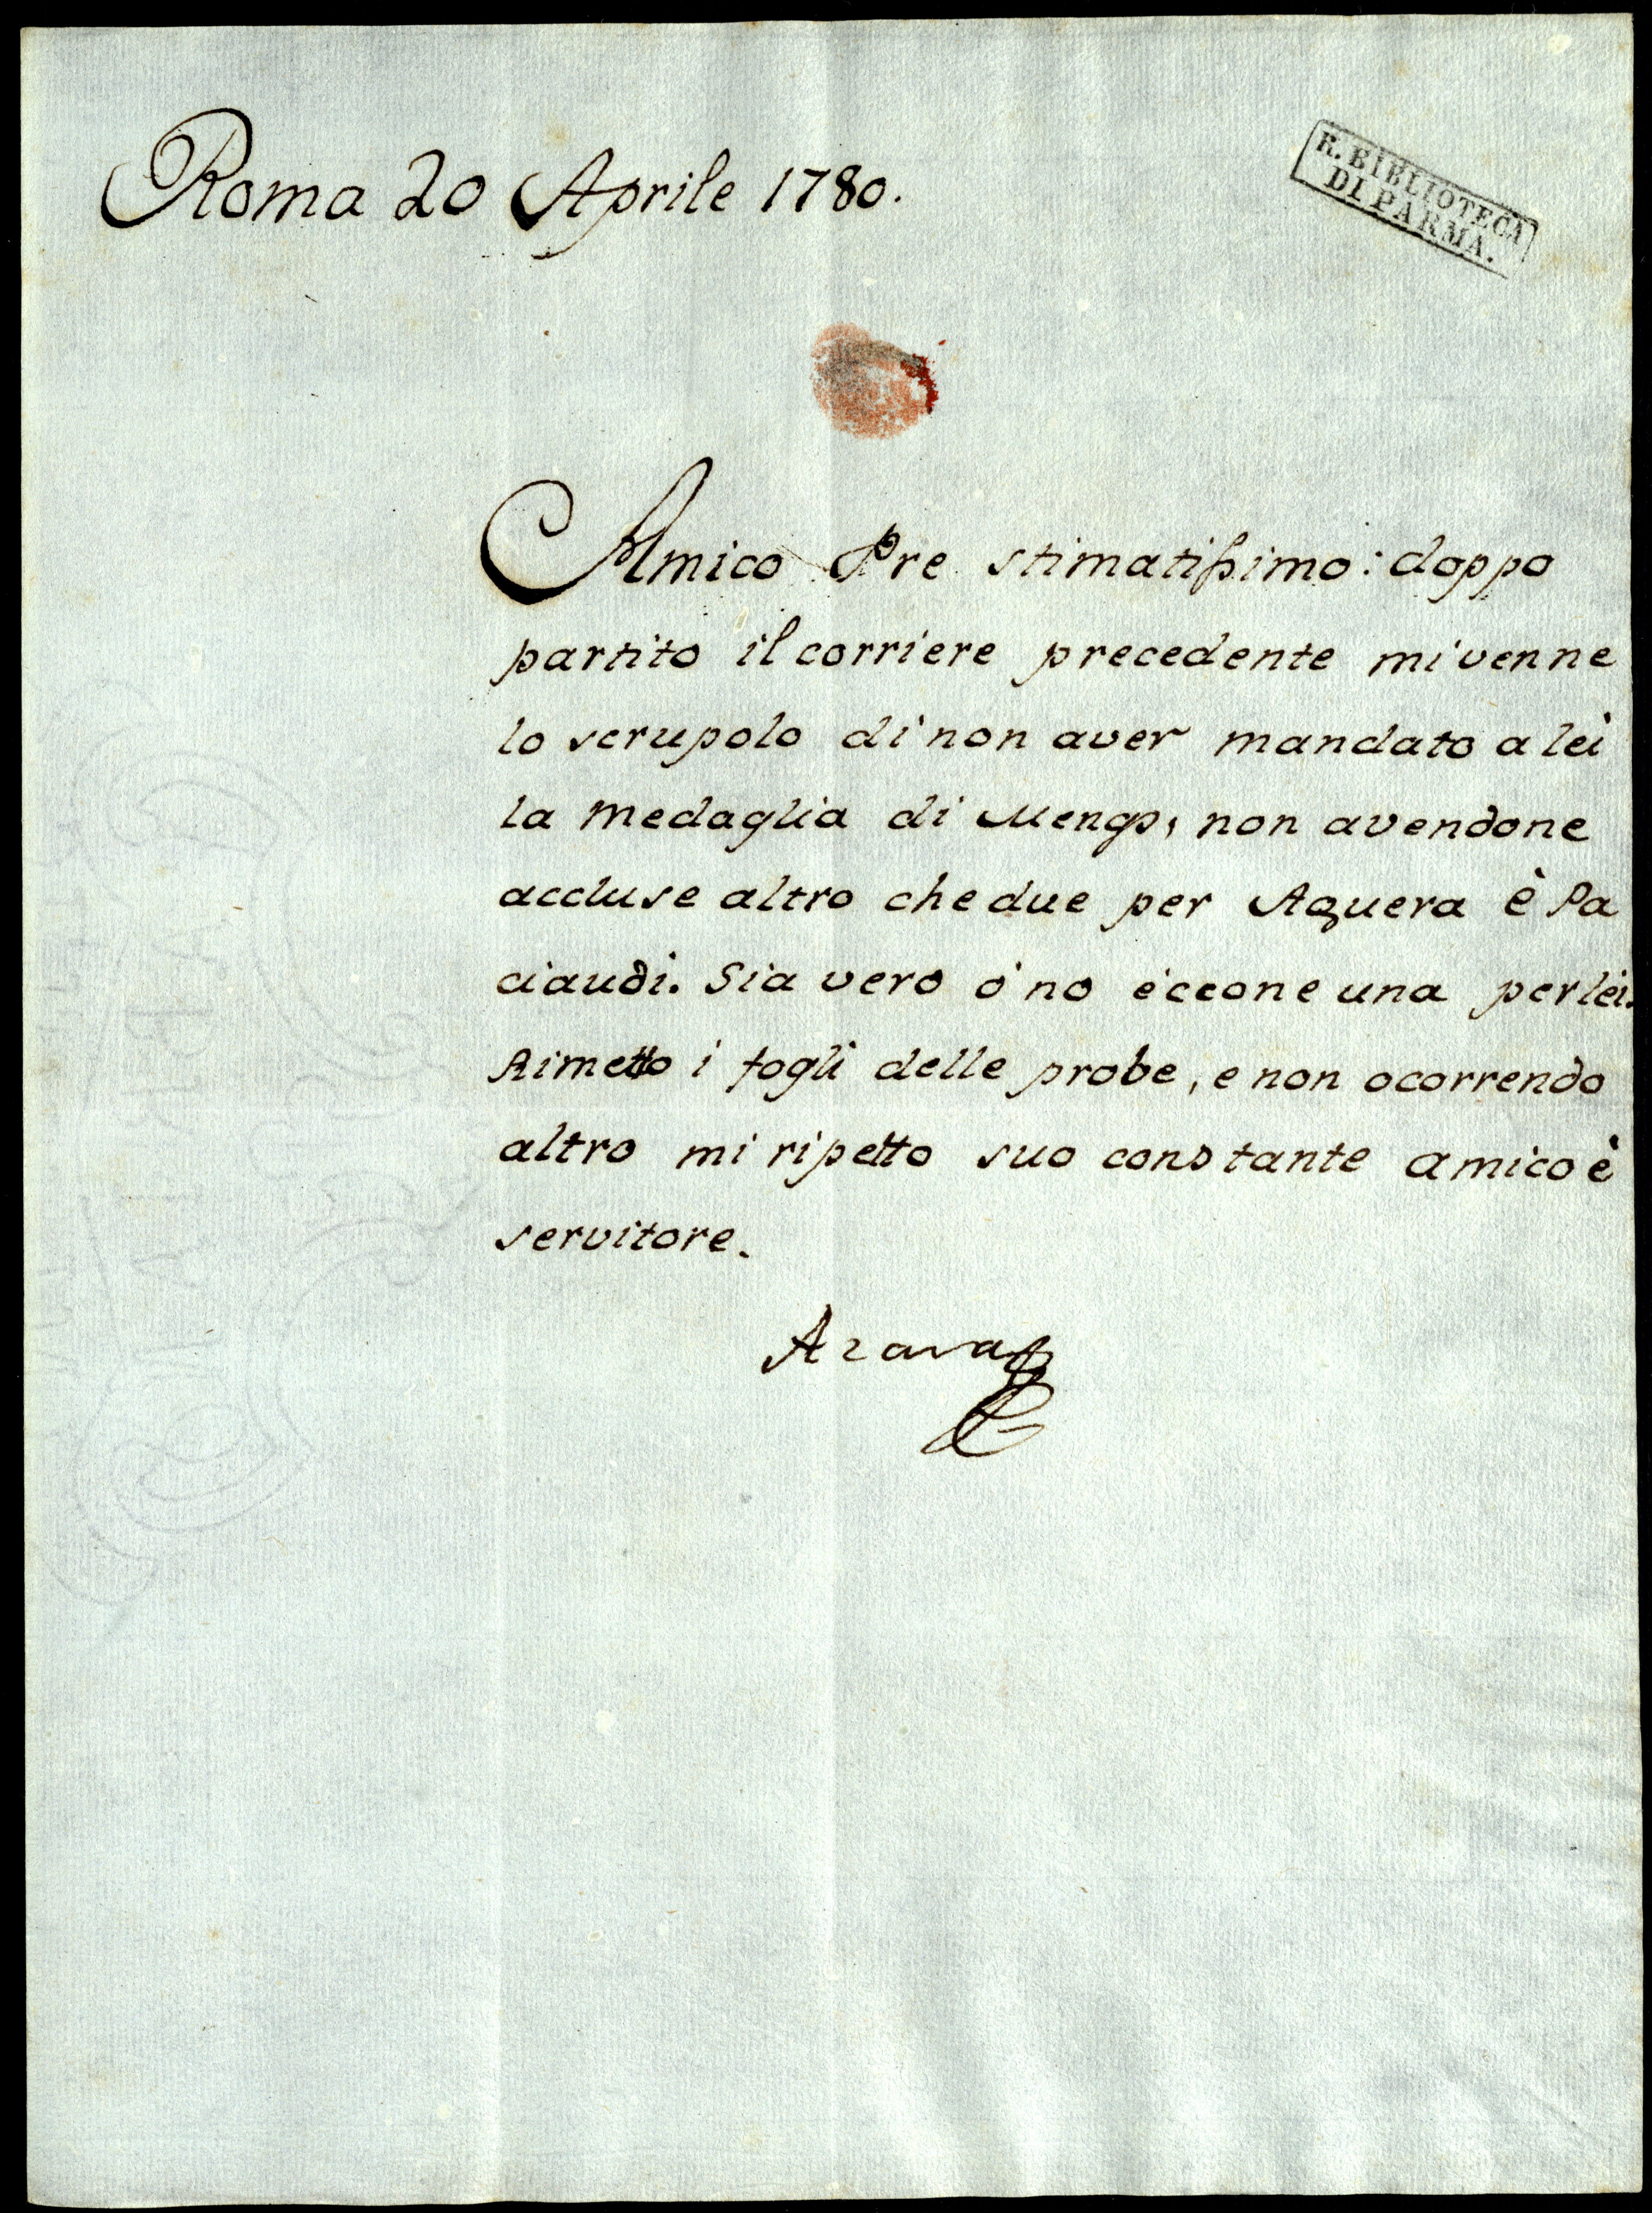 Roma 20 Aprile 1780.
R. BIBLIOTECA
DI PARMA.
Amico Pre stimatissimo: doppo
partito il corriere precedente mi venne
lo scrupolo di non aver mandato a lei
la medaglia di Mengs, non avendone
accluse altro che due per Aquera è Pa
ciaudi. Sia vero ò no èccone una per lei.
Rimetto i fogli delle probe, e non ocorrendo
altro mi ripetto suo constante amico è
servitore.
Azara